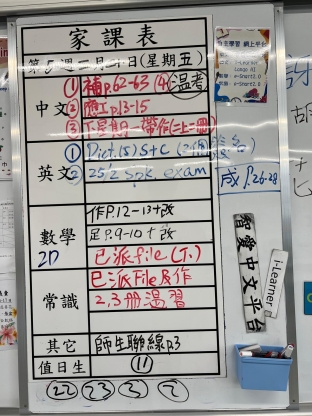 家課表
第5週一月十日(星期五)
中文
① 補p.62-63 (4) 溫考
② 應工p.13-15
③ 下星期一帶作(二上一冊)
英文
① Dict.(5) S+C
② 25/2 Spk. exam
成 P.26-28
數學
作P.12-13+改
足P.9-10+改
已派file(下.)
常識
已派File及作
2,3冊溫習
其它
師生聯線p3
值日生
⑪
㉒ ㉓ ③ ⑦
智愛中文平台
i-Learner
自主學習 網上平台